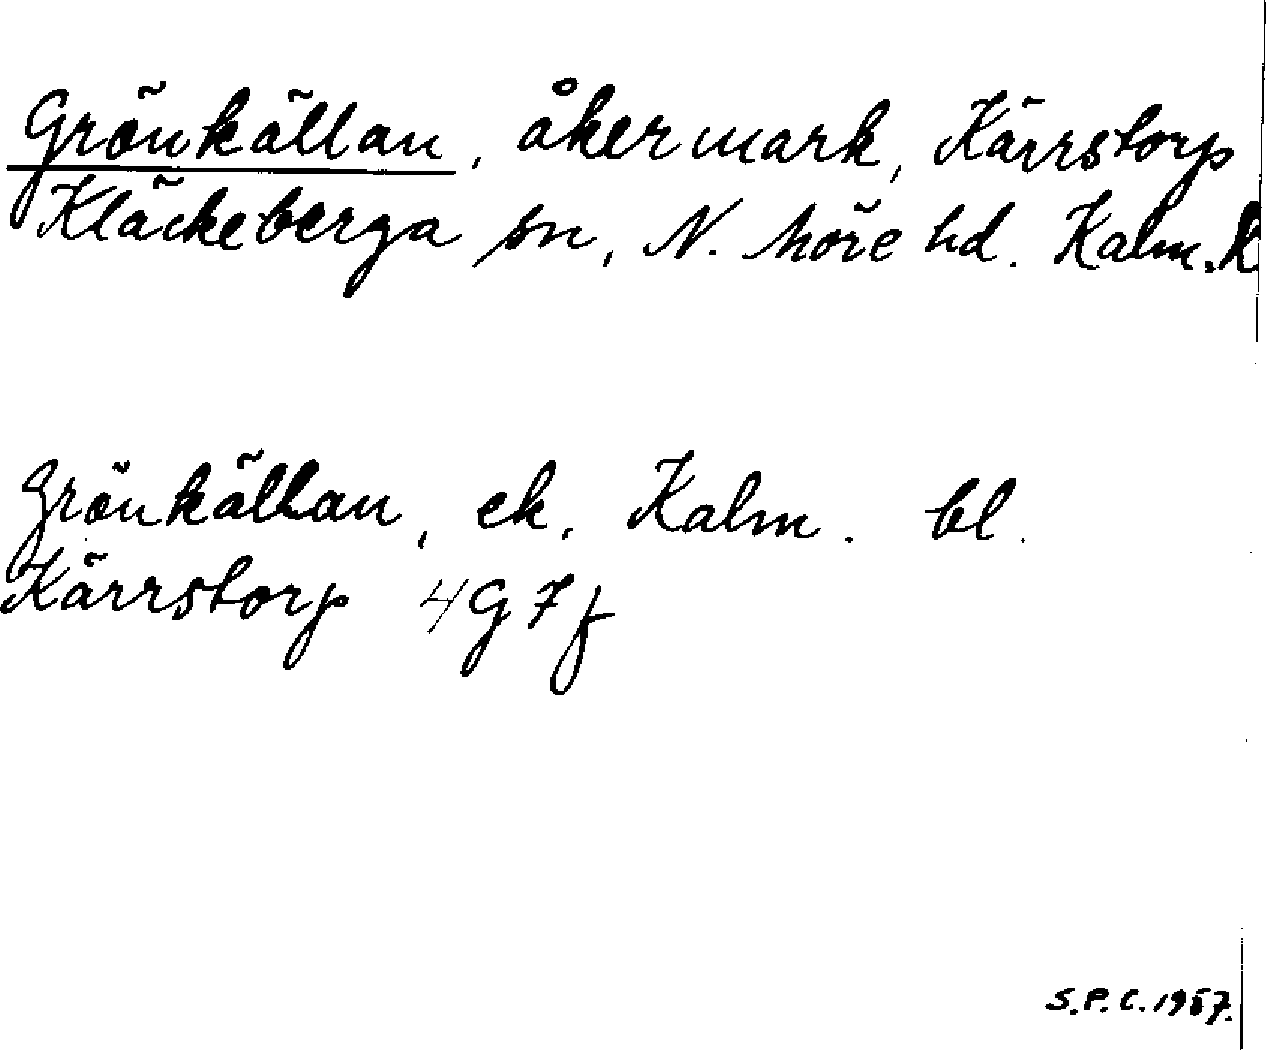 Grönkällan, åkermark, Kärrstorp
Kläckeberga sn, N. Möre hd. Kalm. l.
Grönkällan, ek. Kalm. bl.
Kärrstorp 4G7f
S.P.C. 1957.